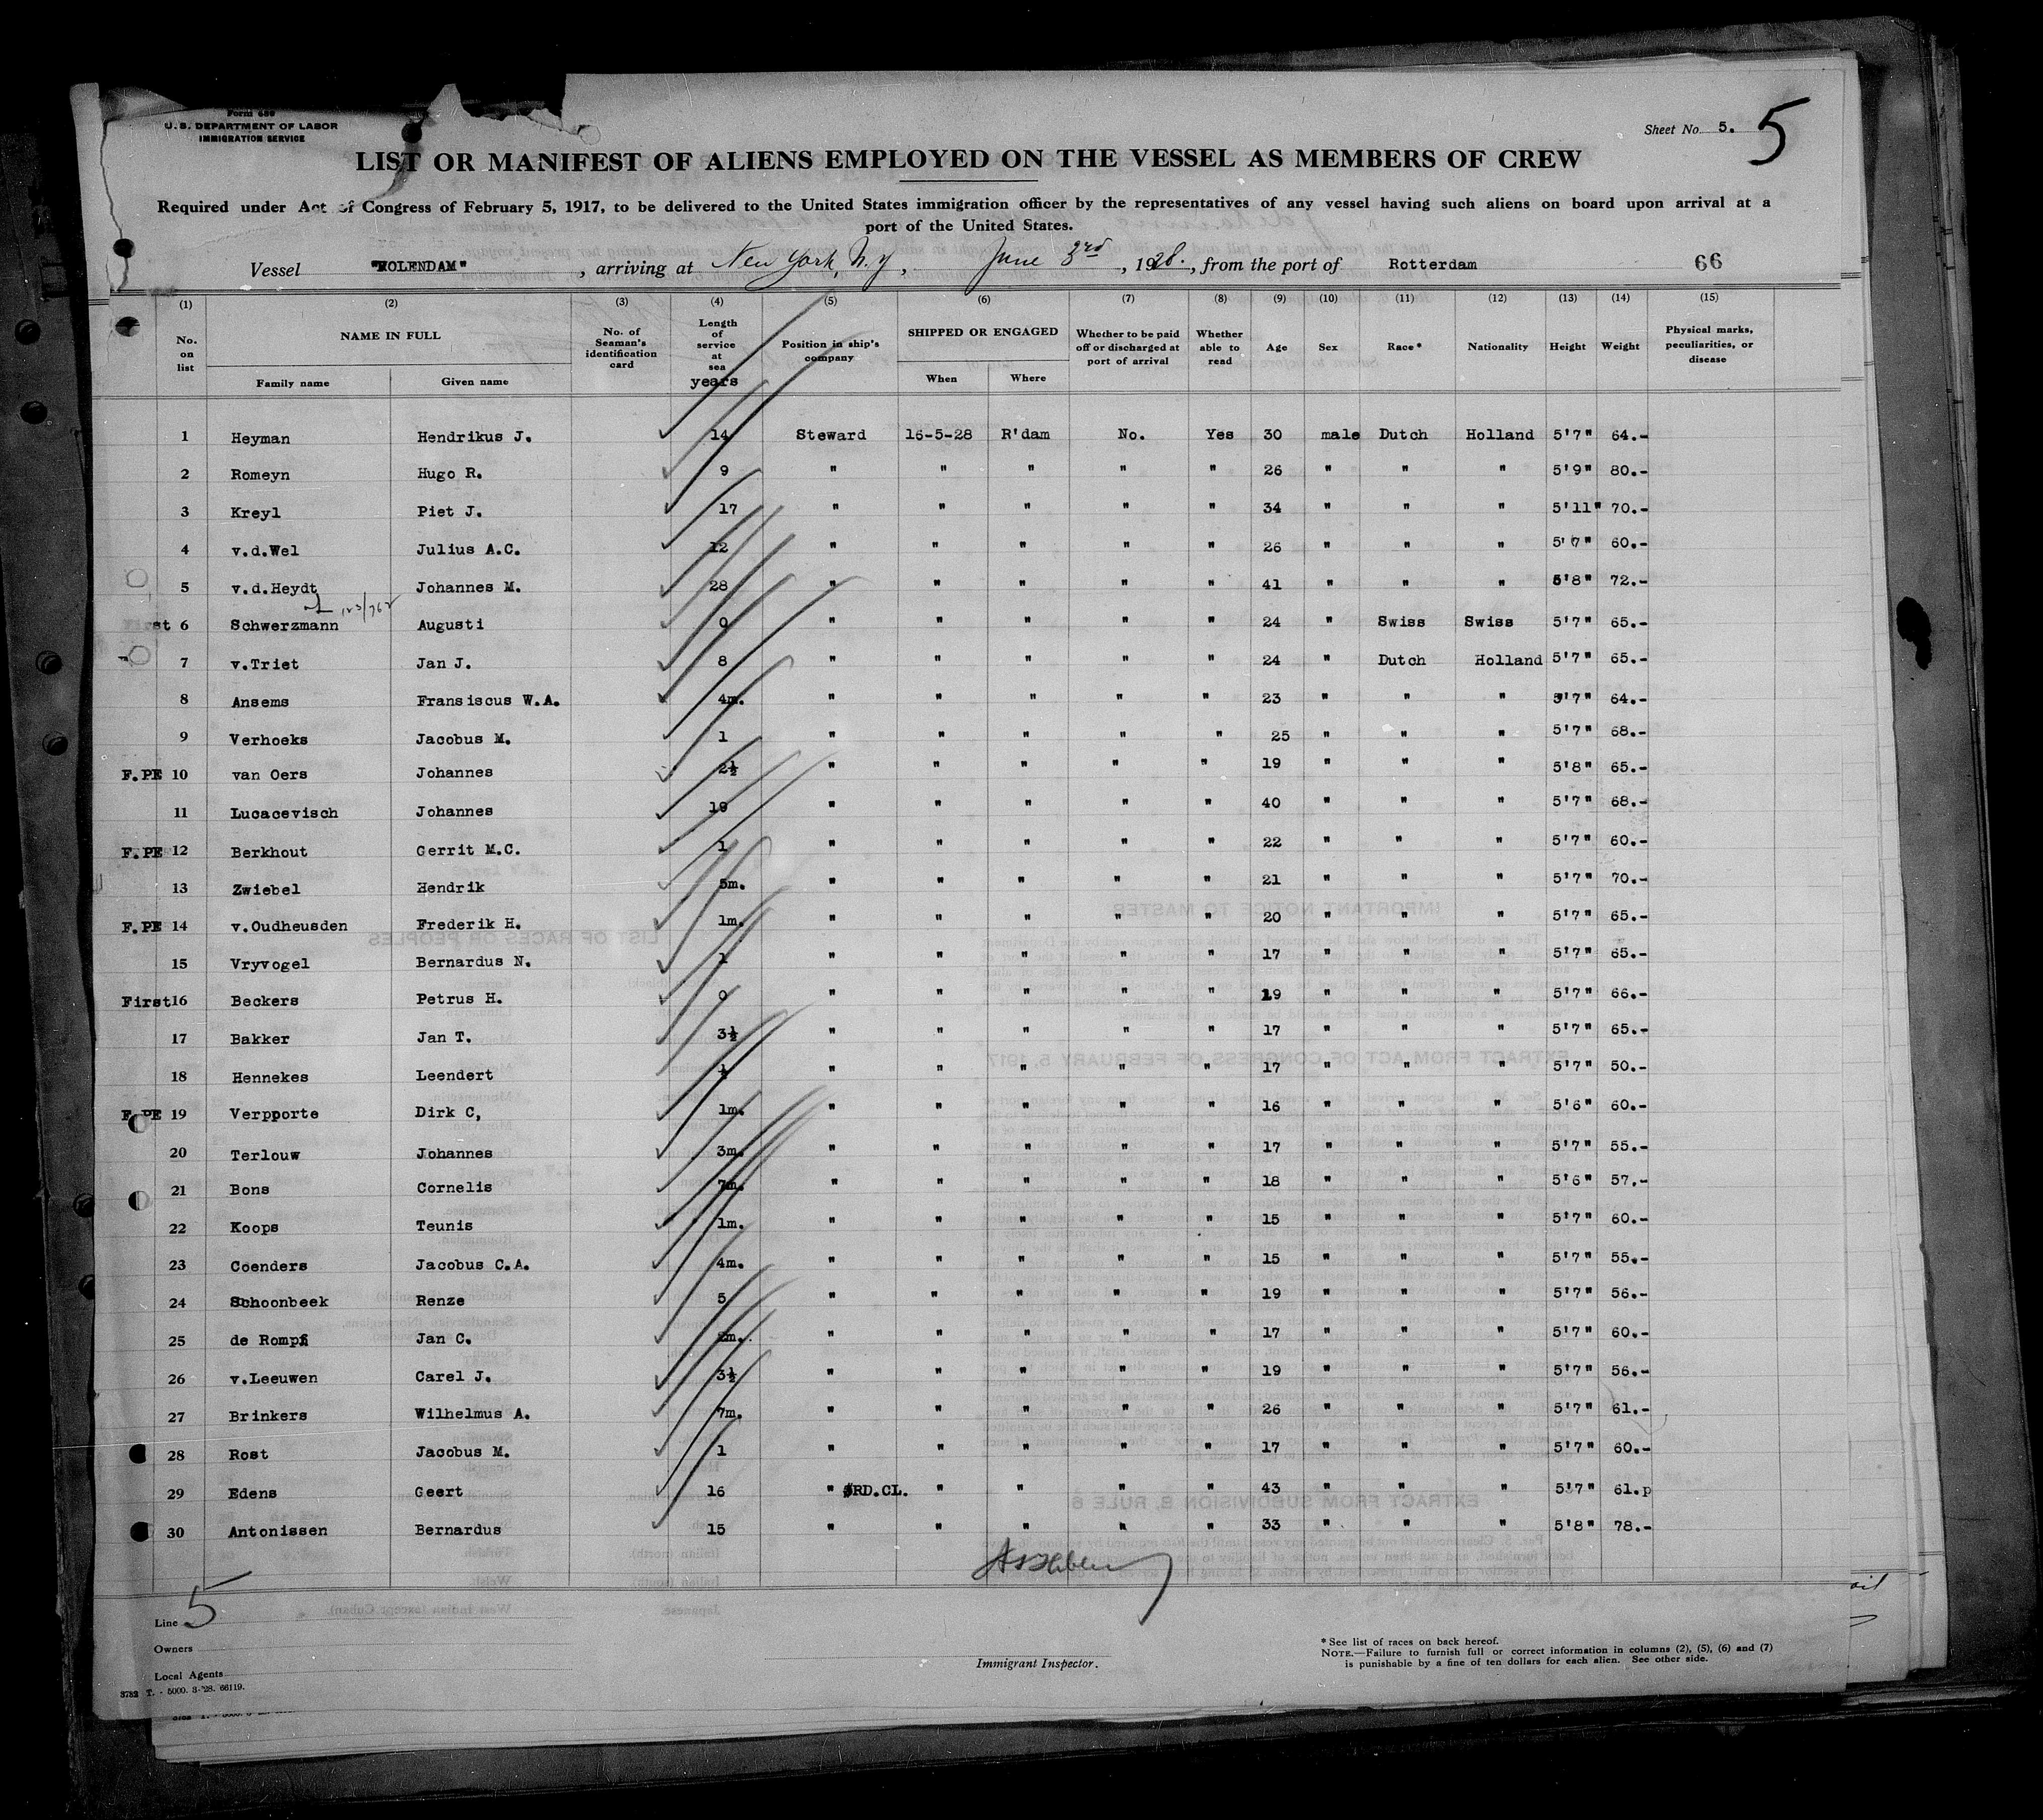 Form 689
U. S. DEPARTMENT OF LABOR
IMMIGRATION SERVICE
Sheet No. 5. 5
LIST OR MANIFEST OF ALIENS EMPLOYED ON THE VESSEL AS MEMBERS OF CREW
Required under Act of Congress of February 5, 1917, to be delivered to the United States immigration officer by the representatives of any vessel having such aliens on board upon arrival at a
port of the United States.
Vessel "VOLENDAM", arriving at New York, N.Y, June 3rd, 1928., from the port of Rotterdam 66
(1) (2) (3) (4) (5) (6) (7) (8) (9) (10) (11) (12) (13) (14) (15)
No. on list NAME IN FULL Family name Given name No. of Seaman's identification card Length of service at sea years Position in ship's company SHIPPED OR ENGAGED When Where Whether to be paid off or discharged at port of arrival Whether able to read Age Sex Race* Nationality Height Weight Physical marks, peculiarities, or disease
1 Heyman Hendrikus J. 14 Steward 16-5-28 R'dam No. Yes 30 male Dutch Holland 5'7" 64.-
2 Romeyn Hugo R. 9 " " " " " 26 " " " 5'9" 80.-
3 Kreyl Piet J. 17 " " " " " 34 " " " 5'11" 70.-
4 v.d.Wel Julius A.C. 12 " " " " " 26 " " " 5'7" 60.-
5 v.d.Heydt Johannes M. 28 " " " " " 41 " " " 5'8" 72.-
123/762
First 6 Schwerzmann Augusti 0 " " " " " 24 " Swiss Swiss 5'7" 65.-
7 v.Triet Jan J. 8 " " " " " 24 " Dutch Holland 5'7" 65.-
8 Ansems Fransiscus W.A. 4m. " " " " " 23 " " " 5'7" 64.-
9 Verhoeks Jacobus M. 1 " " " " " 25 " " " 5'7" 68.-
F.PE 10 van Oers Johannes 2½ " " " " " 19 " " " 5'8" 65.-
11 Lucacevisch Johannes 19 " " " " " 40 " " " 5'7" 68.-
F.PE 12 Berkhout Gerrit M.C. 1 " " " " " 22 " " " 5'7" 60.-
13 Zwiebel Hendrik 5m. " " " " " 21 " " " 5'7" 70.-
F.PE 14 v.Oudheusden Frederik H. 1m. " " " " " 20 " " " 5'7" 65.-
15 Vryvogel Bernardus N. 1 " " " " " 17 " " " 5'7" 65.-
First 16 Beckers Petrus H. 0 " " " " " 19 " " " 5'7" 66.-
17 Bakker Jan T. 3½ " " " " " 17 " " " 5'7" 65.-
18 Hennekes Leendert ½ " " " " " 17 " " " 5'7" 50.-
F.PE 19 Verpporte Dirk C, 1m. " " " " " 16 " " " 5'6" 60.-
20 Terlouw Johannes 3m. " " " " " 17 " " " 5'7" 55.-
21 Bons Cornelis 7m. " " " " " 18 " " " 5'6" 57.-
22 Koops Teunis 1m. " " " " " 15 " " " 5'7" 60.-
23 Coenders Jacobus C.A. 4m. " " " " " 15 " " " 5'7" 55.-
24 Schoonbeek Renze 5 " " " " " 19 " " " 5'7" 56.-
25 de Romph Jan C. 2m. " " " " " 17 " " " 5'7" 60.-
26 v.Leeuwen Carel J. 3½ " " " " " 19 " " " 5'7" 56.-
27 Brinkers Wilhelmus A. 7m. " " " " " 26 " " " 5'7" 61.-
28 Rost Jacobus M. 1 " " " " " 17 " " " 5'7" 60.-
29 Edens Geert 16 " 3RD.CL. " " " " 43 " " " 5'7" 61.p
30 Antonissen Bernardus 15 " " " " " 33 " " " 5'8" 78.-
Line 5
Owners
Local Agents
Immigrant Inspector.
* See list of races on back hereof.
NOTE.—Failure to furnish full or correct information in columns (2), (5), (6) and (7)
is punishable by a fine of ten dollars for each alien. See other side.
3782 T. - 5000. 3-'28. 66119.